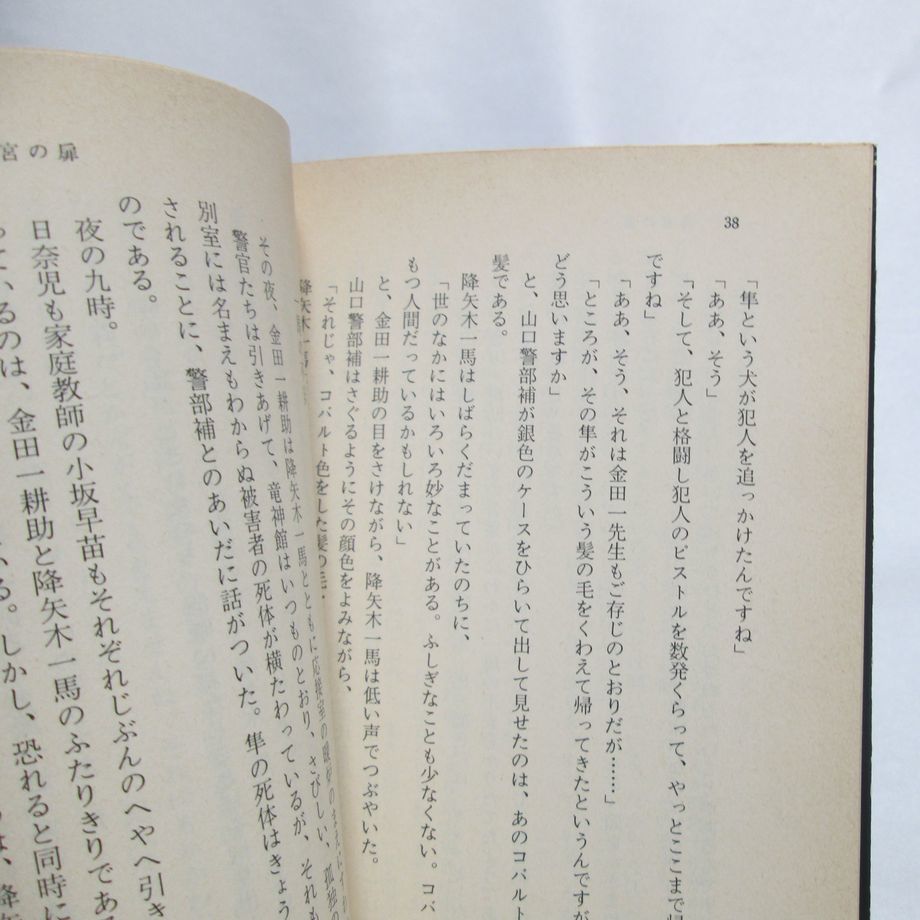 38
「隼という犬が犯人を追っかけたんですね」
「ああ、そう」
「そして、犯人と格闘し犯人のピストルを数発くらって、やっとここまで帰
ですね」
「ああ、そう、それは金田一先生もご存じのとおりだが……」
「ところが、その隼がこういう髪の毛をくわえて帰ってきたというんですが
どう思いますか」
と、山口警部補が銀色のケースをひらいて出して見せたのは、あのコバルト
髪である。
降矢木一馬はしばらくだまっていたのちに、
「世のなかにはいろいろ妙なことがある。ふしぎなことも少なくない。コバ
もつ人間だっているかもしれない」
と、金田一耕助の目をさけながら、降矢木一馬は低い声でつぶやいた。
山口警部補はさぐるようにその顔色をよみながら、
「それじゃ、コバルト色をした髪の毛
降矢木一馬
宮の扉
その夜、金田一耕助は降矢木一馬とともに応接室の
警官たちは引きあげて、竜神館はいつものとおり、さびしい、孤独の
別室には名まえもわからぬ被害者の死体が横たわっているが、それも
されることに、警部補とのあいだに話がついた。隼の死体はきょう
のである。
夜の九時。
日奈児も家庭教師の小坂早苗もそれぞれじぶんのへやへ引き
いるのは、金田一耕助と降矢木一馬のふたりきりであ
る。しかし、恐れると同時に
は、降矢